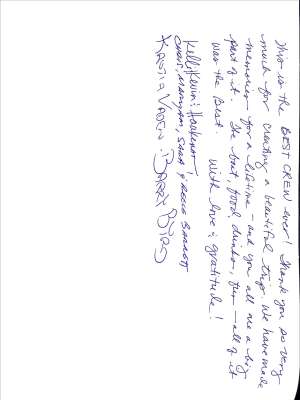 This is the BEST CREW ever! Thank you so very
much for creating a beautiful trip. We have made
memories for a lifetime - and you all are a big
part of it. The boat, food, drinks, fun - all of it
was the Best. With love & gratitude!
Kelli & Kevin
Sarah &
KRISTIA VADEN · BARRY BIRD